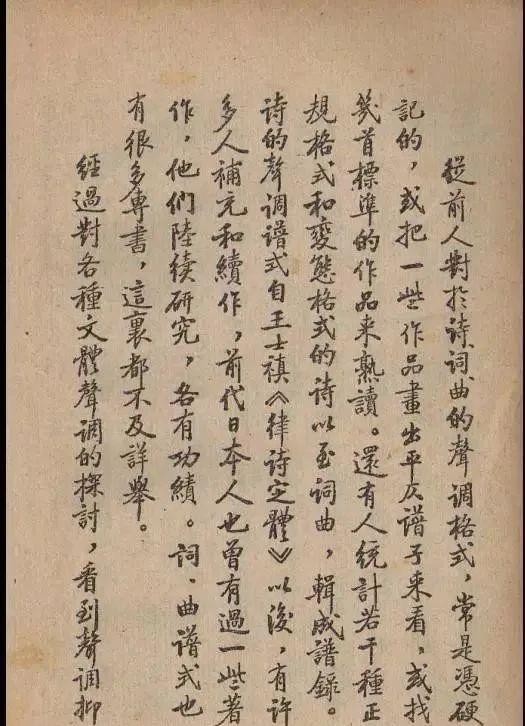 從前人對於詩詞曲的聲調格式，常是憑硬
記的，或把一些作品畫出平仄谱子來看，或找
幾首標準的作品来熟讀。還有人统計若干種正
規格式和變態格式的诗以至词曲，輯成譜錄。
诗的聲调谱式自王士禛《律诗定體》以後，有許
多人補充和續作，前代日本人也曾有過一些著
作，他們陸续研究，各有功績。词、曲谱式也
有很多專書，這裏都不及詳舉。
經過對各種文體聲調的探討，看到聲调抑